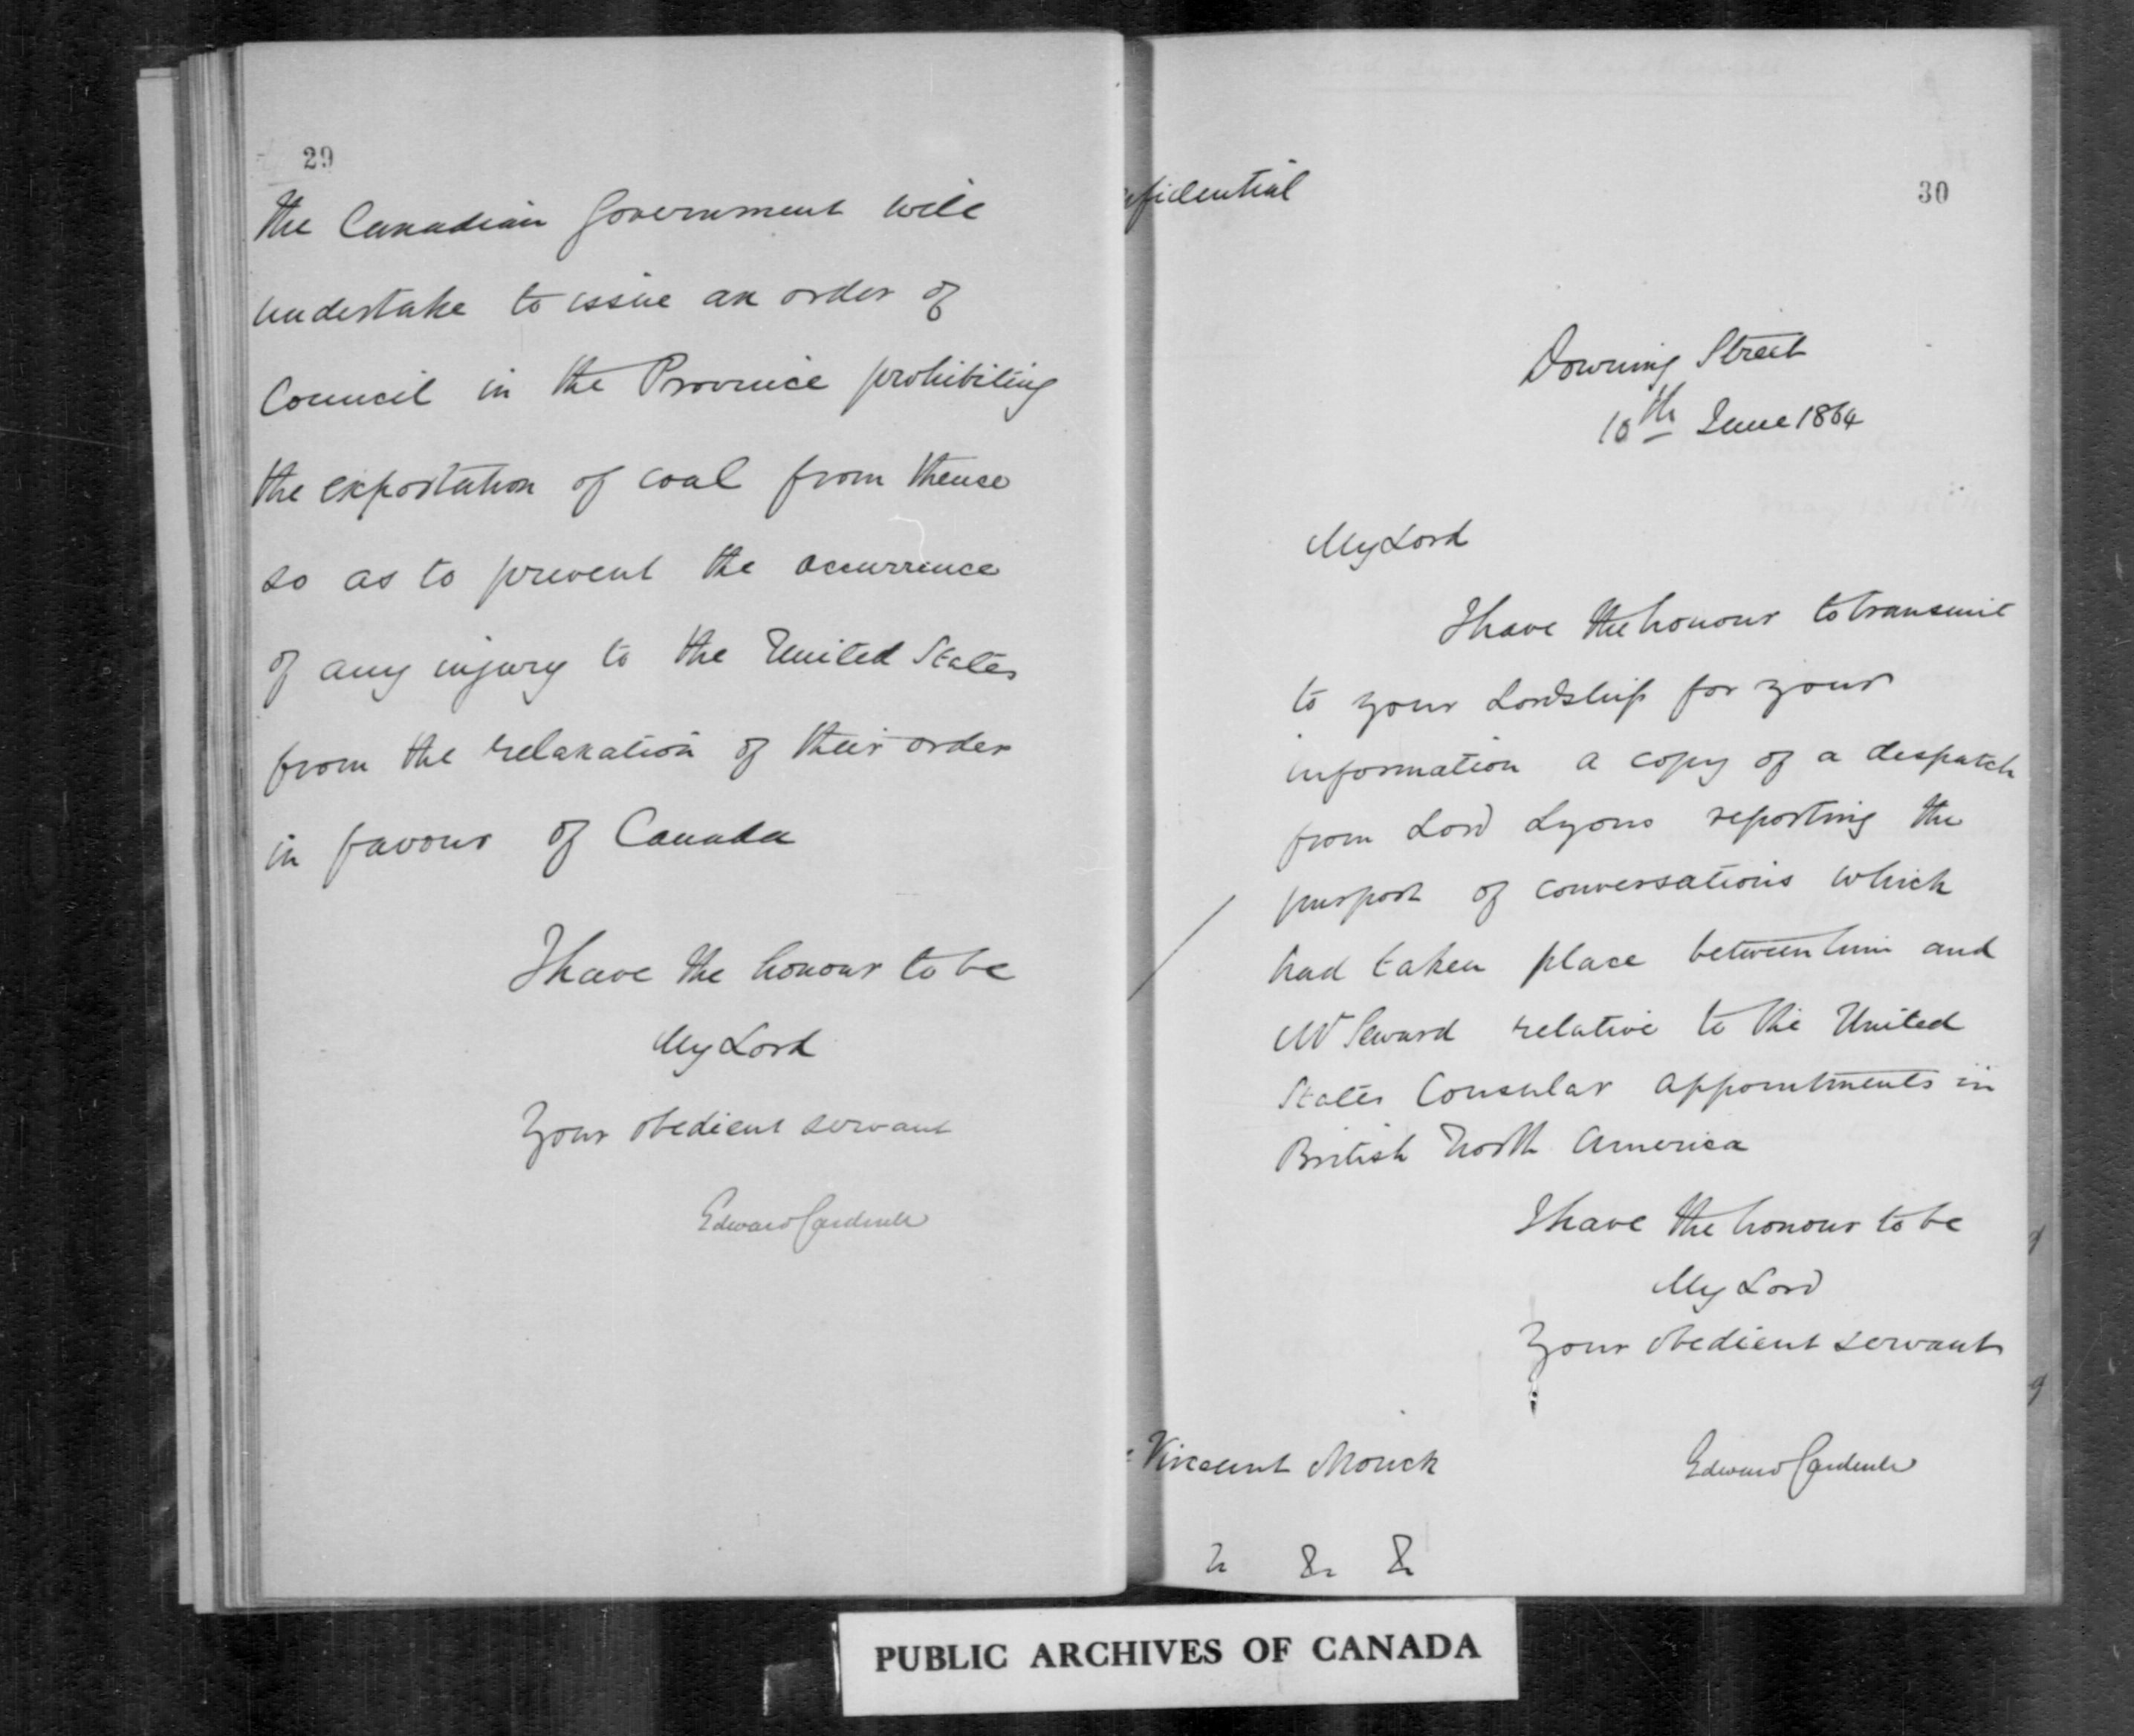 29
the Canadian Government will
undertake to issue an order of
Council in the Province prohibiting
the exportation of coal from thence
so as to prevent the occurrence
of any injury to the United States
from the relaxation of their order
in favour of Canada
I have the honour to be
My Lord
Your obedient servant
Edward Cardwell
nfidential
30
Downing Street
10th June 1864
My Lord
I have the honour to transmit
to your Lordship for your
information a copy of a despatch
from Lord Lyons reporting the
purport of conversations which
had taken place between him and
Mr Seward relative to the United
States Consular appointments in
British North America
I have the honour to be
My Lord
Your obedient servant
Viscount Monck
Edward Cardwell
& & &
PUBLIC ARCHIVES OF CANADA